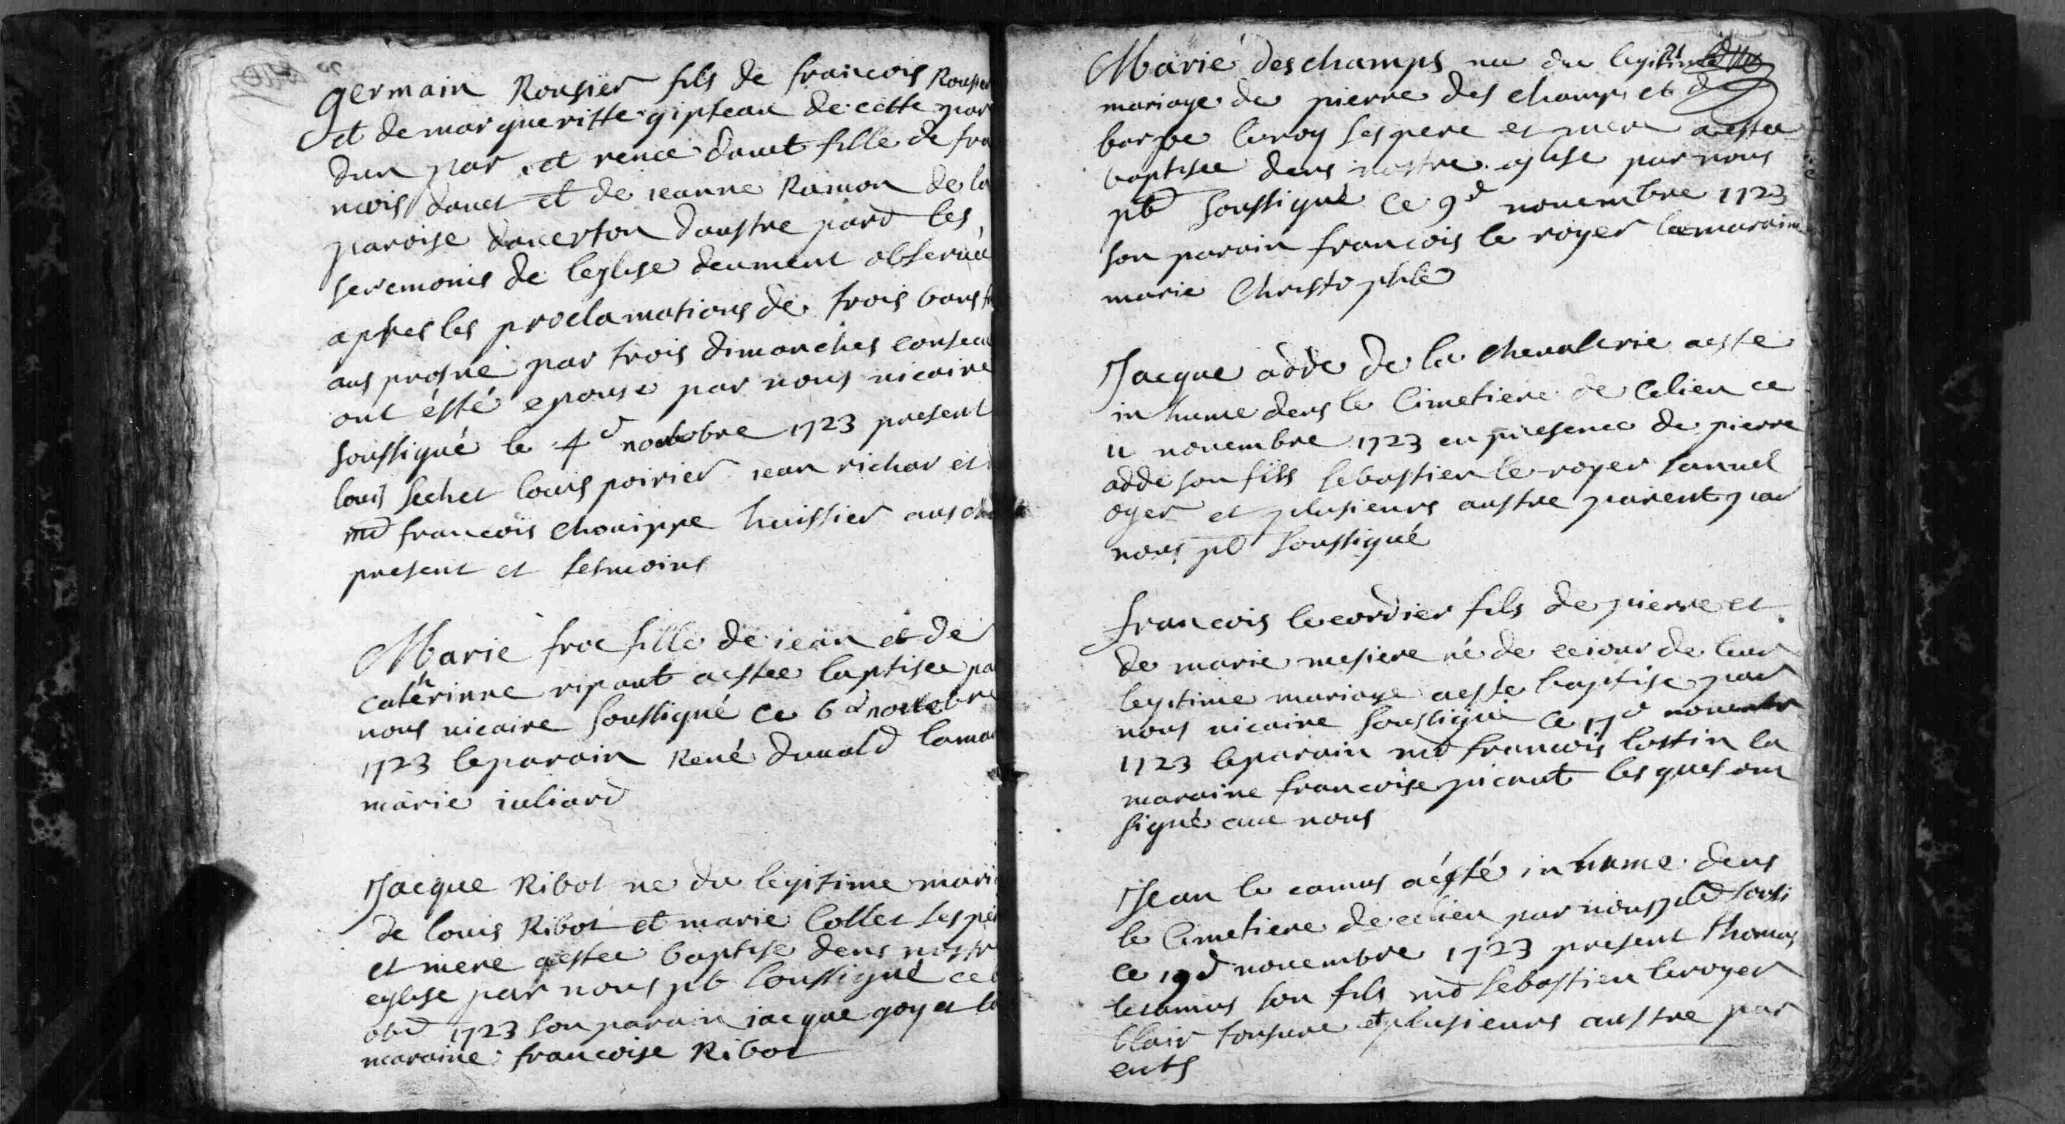 germain Rousier fils de francois Rousier
et de margueritte gipteau de cette par
dun par et renee douet fille de fran
cois douet et de ieanne Ramon de la
paroise daverton daustre pard les
seremonis de leglise deument observé
apres les proclamations de trois bans
aus prosne par trois dimanches consecu
ont ésté epouse par nous vicaire
soussigué le 4e novebre 1723 present
louis sechet louis poirier iean richar et
md francois chouippe huissier aus
present et tesmoins
Marie froc fille de iean et de
catherinne ripaut aestee baptisee pa
nous vicaire soussigué ce 6d novebre
1723 leparain René duvald lama
marie iuliard
Jacque Ribot ne du legitime mari
de louis Ribot et marie Collet ses per
et mere aestee baptise dens nostre
eglise par nous pb soussigué ce
1723 son parain iacque goyet la
maraine francoise Ribot
Marié deschamps nee du legitime
mariage de pierre des champs et d
barbe leroy ses pere et mere a estee
baptisee dens nostre eglise par nous
pb soussigué ce 9d novembre 1723
son parain francois le royer lamaraine
marie Christophle
Jacque adde de la chevalerie aeste
in hume dens le Cimetiere de celieu ce
11 novembre 1723 en presence de pierre
adde son fils sebastien le royer samuel
oger et plusieurs austre parent par
nous pb soussigué
francois lecordier fils de pierre et
de marie mesiere né de ceiour de leur
legitime mariage aeste baptise par
nous vicaire soussigué ce 17d novembr
1723 leparain md francois lostin la
maraine francoise picaut lesques ont
signé avec nous
Jean le camus aésté in hume dens
le Cimetiere de celieu par nous pb sousi
ce 19d novembre 1723 present thomas
lecamus son fils md sebastien leroyer
Clair tonsure et plusieurs austre par
ents